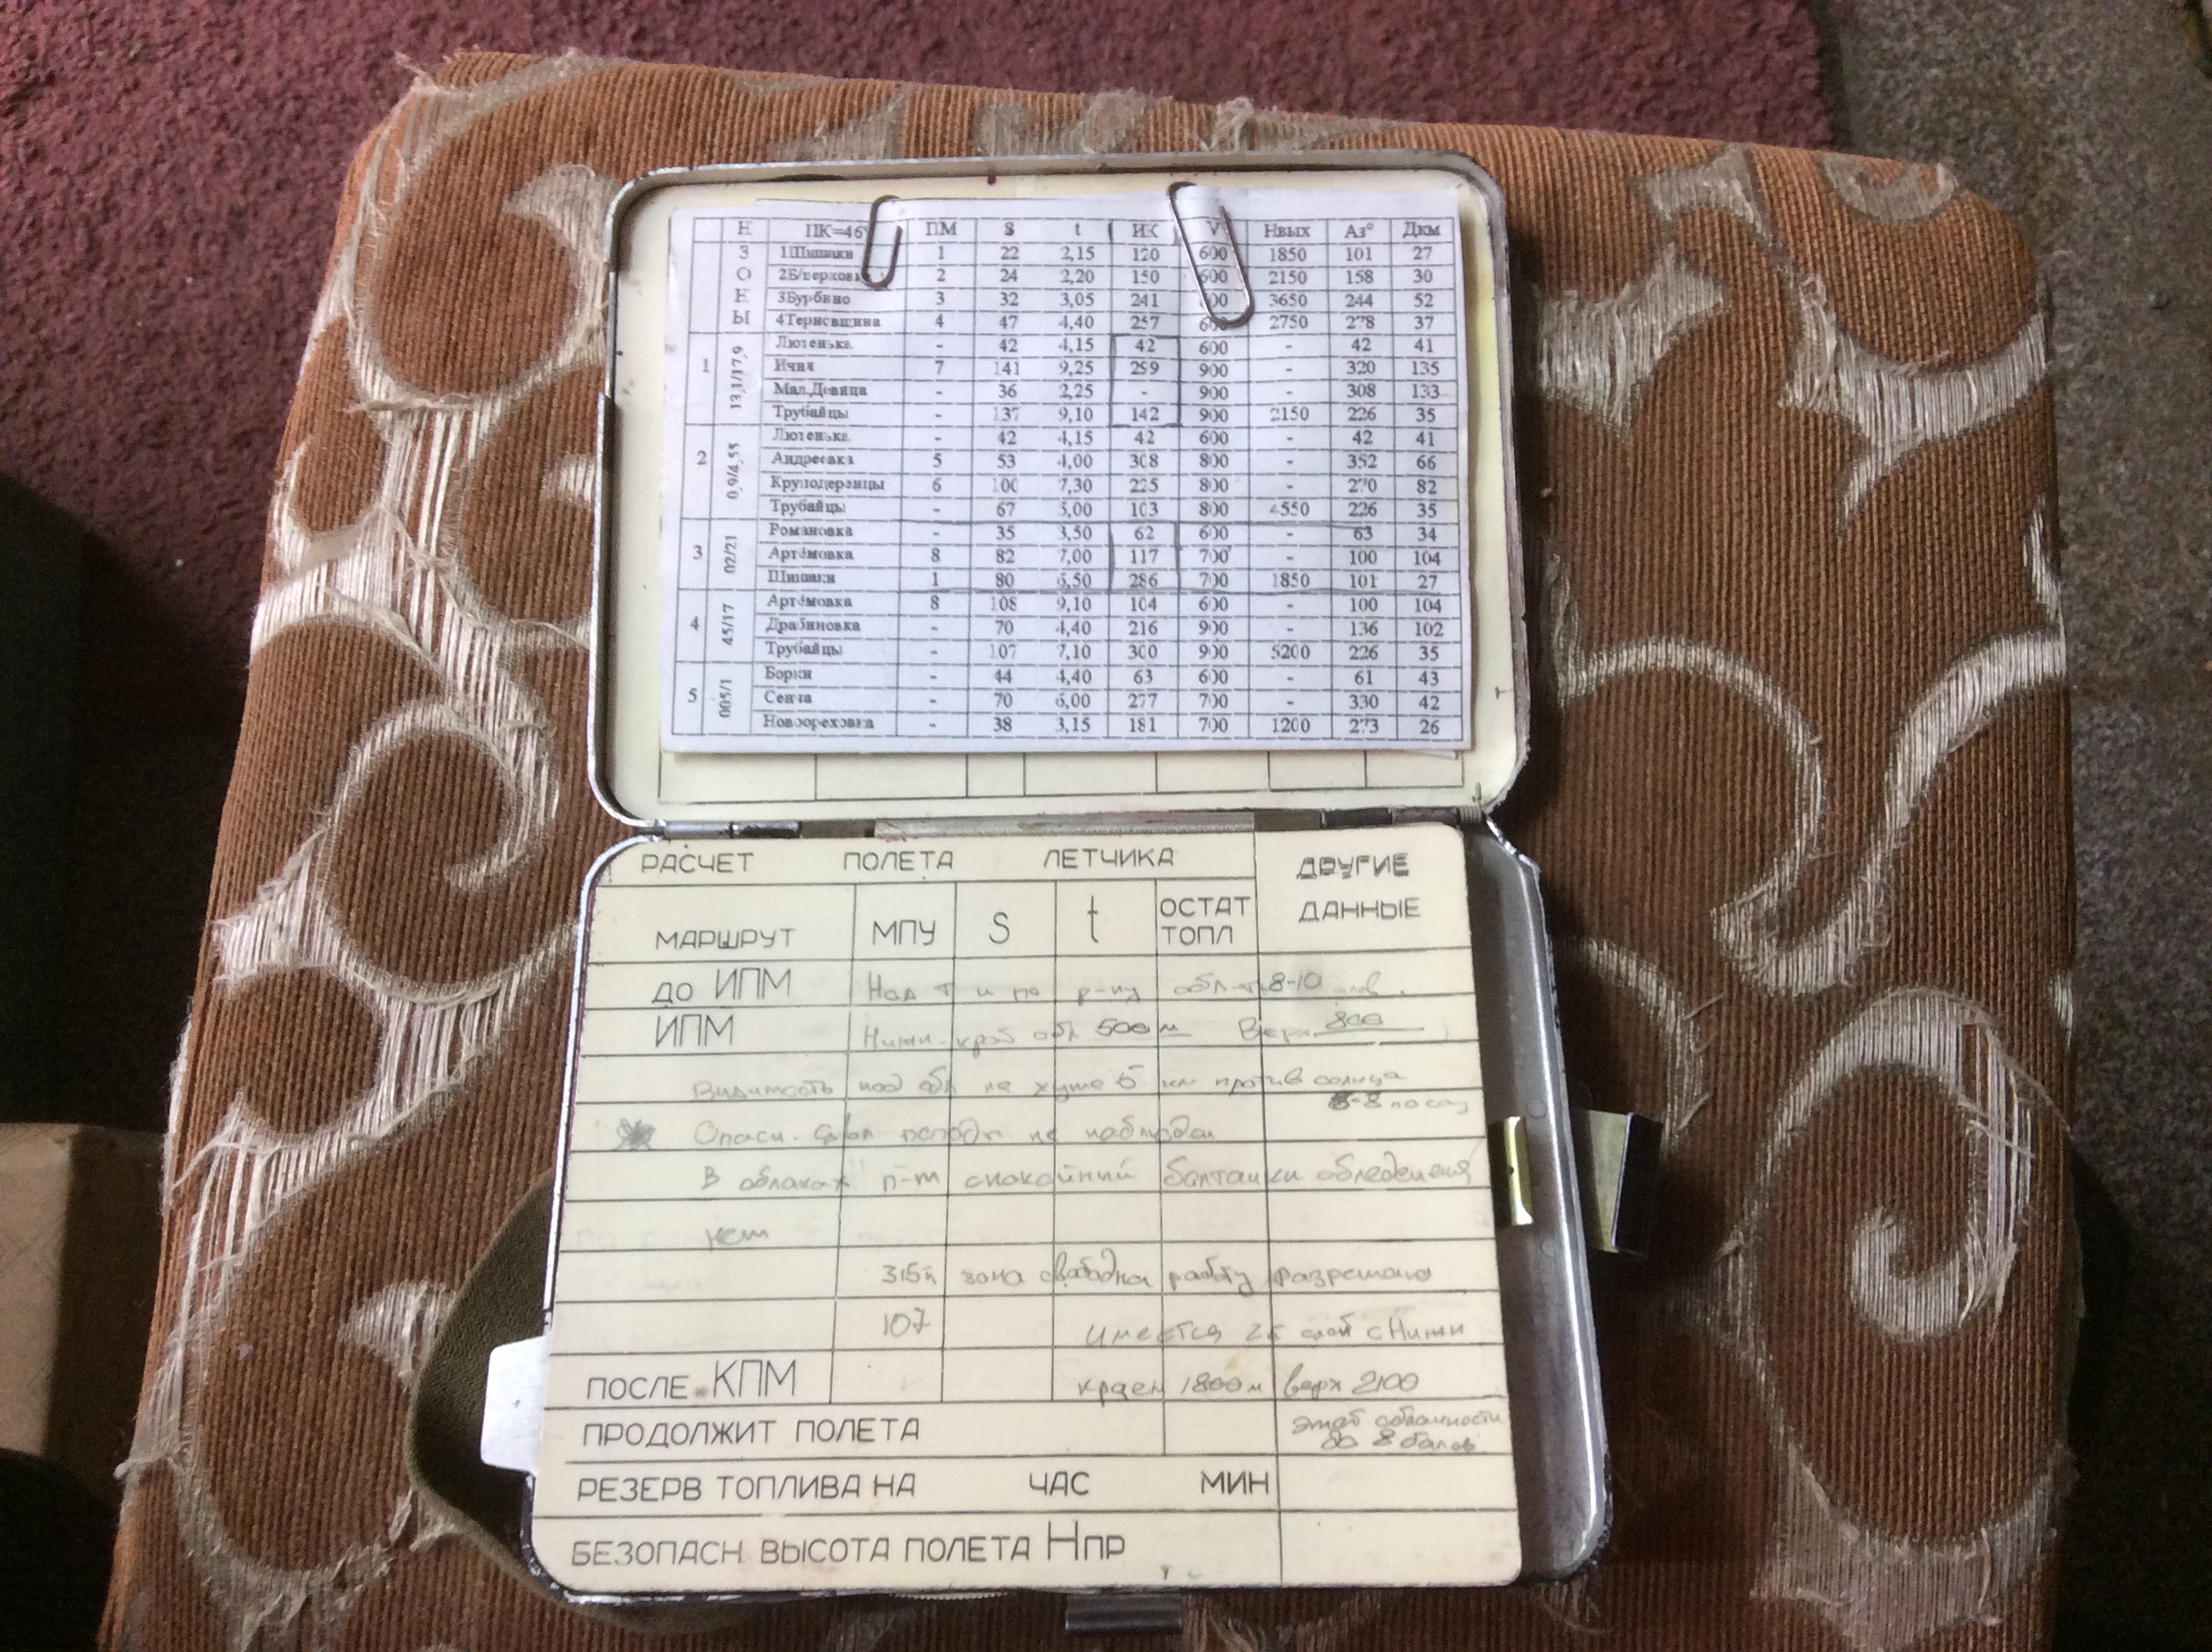 Н ПК=46 ПМ S t ИК V Нвых Аз° Дкм
З 1Шишаки 1 22 2,15 120 600 1850 101 27
О 2Б/перховка 2 24 2,20 150 600 2150 158 30
Н 3Бурбино 3 32 3,05 241 600 3650 244 52
Ы 4Терновщина 4 47 4,40 257 600 2750 278 37
Лютенька - 42 4,15 42 600 - 42 41
1 13,1/17,9 Ичня 7 141 9,25 299 900 - 320 135
Мал.Девица - 36 2,25 - 900 - 308 133
Трубайцы - 137 9,10 142 900 2150 226 35
Лютенька - 42 4,15 42 600 - 42 41
2 0,9/4,55 Андреевка 5 53 4,00 308 800 - 352 66
Круподеренцы 6 100 7,30 225 800 - 270 82
Трубайцы - 67 5,00 103 800 4550 226 35
Романовка - 35 3,50 62 600 - 63 34
3 02/21 Артёмовка 8 82 7,00 117 700 - 100 104
Шишаки 1 80 6,50 286 700 1850 101 27
Артёмовка 8 108 9,10 104 600 - 100 104
4 45/17 Драбиновка - 70 4,40 216 900 - 136 102
Трубайцы - 107 7,10 300 900 5200 226 35
Борки - 44 4,40 63 600 - 61 43
5 005/1 Сенча - 70 6,00 277 700 - 330 42
Новоореховка - 38 3,15 181 700 1200 273 26
РАСЧЕТ ПОЛЕТА ЛЕТЧИКА ДРУГИЕ ДАННЫЕ
МАРШРУТ МПУ S t ОСТАТ ТОПЛ
ДО ИПМ Над т и по р-ну обл-т 8-10
ИПМ Нижн. край обл 500 м Верх. 800
Видимость под обл не хуже 5 км против солнца
6-8 посад
Опасн. явл погоды не наблюдал
В облаках п-т спокойный болтанки обледенения
нет
315й зона свободна работу разрешаю
107 имеется 2й слой с Нижн
ПОСЛЕ КПМ краем 1800 м верх 2100
ПРОДОЛЖИТ ПОЛЕТА этой облачности
до 8 балов
РЕЗЕРВ ТОПЛИВА НА ЧАС МИН
БЕЗОПАСН. ВЫСОТА ПОЛЕТА Нпр